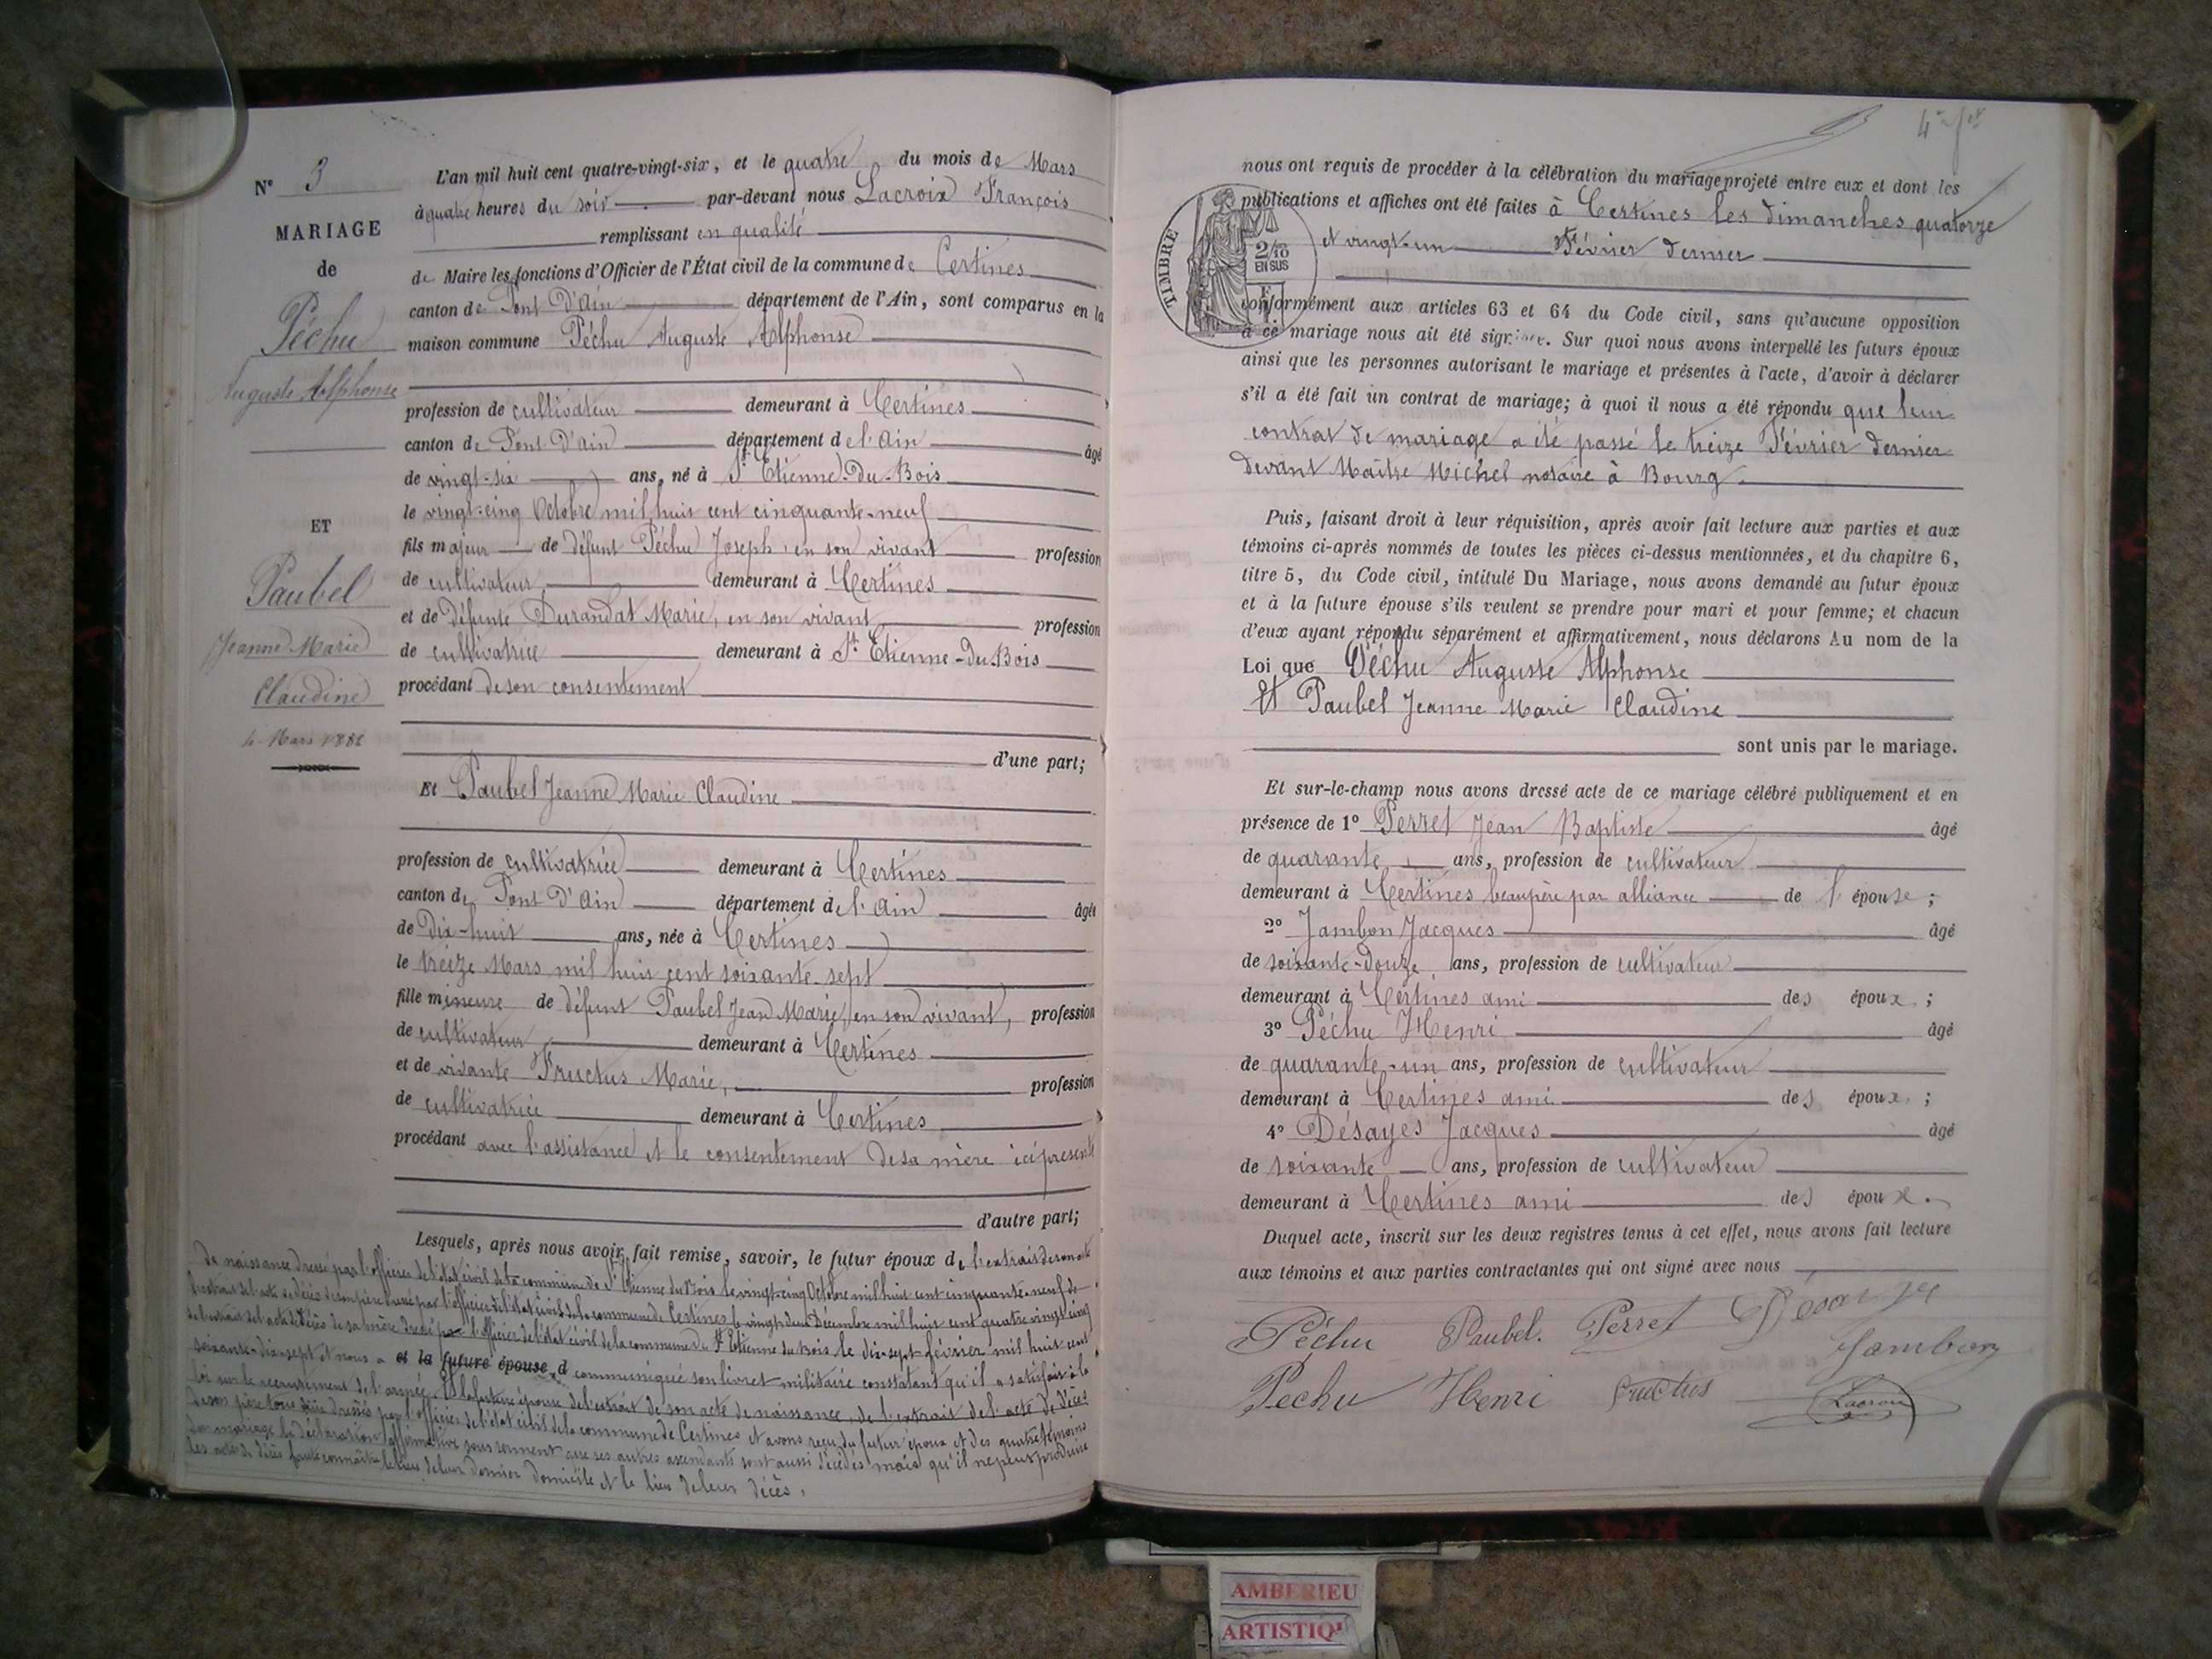 N° 3
MARIAGE
de
Péchu
Auguste Alphonse
ET
Paubel
Jeanne Marie
Claudine
4 Mars 1886
L'an mil huit cent quatre-vingt-six, et le quatre du mois de Mars
à quatre heures du soir par-devant nous Lacroix François
remplissant en qualité
de Maire les fonctions d'Officier de l'État civil de la commune de Certines
canton de Pont D'Ain département de l'Ain, sont comparus en la
maison commune Péchu Auguste Alphonse
profession de cultivateur demeurant à Certines
canton de Pont D'ain département de l'ain âgé
de vingt-six ans, né à St Etienne-Du-Bois
le vingt-cinq Octobre mil huit cent cinquante-neuf
fils majeur de défunt Péchu Joseph, en son vivant profession
de cultivateur demeurant à Certines
et de défunte Durandat Marie, en son vivant profession
de cultivatrice demeurant à St Etienne-Du-Bois
procédant de son consentement
d'une part;
Et Paubel Jeanne Marie Claudine
profession de cultivatrice demeurant à Certines
canton de Pont D'ain département de l'ain âgée
de Dix-huit ans, née à Certines
le treize Mars mil huit cent soixante-sept
fille mineure de défunt Paubel Jean Marie, en son vivant, profession
de cultivateur demeurant à Certines
et de vivante Fructus Marie, profession
de cultivatrice demeurant à Certines
procédant avec l'assistance et le consentement de sa mère ici présente
d'autre part;
Lesquels, après nous avoir fait remise, savoir, le futur époux de l'extrait de son acte
de naissance dressé par l'officier de l'état civil de la commune de St Etienne du Bois le vingt-cinq Octobre mil huit cent cinquante-neuf de
l'extrait de l'acte de décès de son père dressé par l'officier de l'état civil de la commune de Certines le vingt-deux Décembre mil huit cent quatre vingt cinq
de l'extrait de l'acte de décès de sa mère dressé par l'officier de l'état civil de la commune de St Etienne du Bois le dix-sept février mil huit cent
soixante-dix-sept et nous a et la future épouse, d communiqué son livret militaire constatant qu'il a satisfait à la
loi sur le recrutement de l'armée. Et la future épouse de l'extrait de son acte de naissance, de l'extrait de l'acte de décès
de son père tous dressés par l'officier de l'état civil de la commune de Certines et avons reçu du futur époux et des quatre témoins
du mariage la déclaration affirmative sous serment que ses autres ascendants sont aussi décédés mais qu'il ne peut produire
les actes de décès faute connaître le lieu de leur dernier domicile et le lieu de leur décès.
4e
nous ont requis de procéder à la célébration du mariage projeté entre eux et dont les
publications et affiches ont été faites à Certines les dimanches quatorze
et vingt-un Février dernier
TIMBRE
2/10
EN SUS
conformément aux articles 63 et 64 du Code civil, sans qu'aucune opposition
à ce mariage nous ait été signifiée. Sur quoi nous avons interpellé les futurs époux
ainsi que les personnes autorisant le mariage et présentes à l'acte, d'avoir à déclarer
s'il a été fait un contrat de mariage; à quoi il nous a été répondu que leur
contrat de mariage a été passé le treize Février dernier
devant Maître Michel notaire à Bourg.
Puis, faisant droit à leur réquisition, après avoir fait lecture aux parties et aux
témoins ci-après nommés de toutes les pièces ci-dessus mentionnées, et du chapitre 6,
titre 5, du Code civil, intitulé Du Mariage, nous avons demandé au futur époux
et à la future épouse s'ils veulent se prendre pour mari et pour femme; et chacun
d'eux ayant répondu séparément et affirmativement, nous déclarons Au nom de la
Loi que Péchu Auguste Alphonse
Et Paubel Jeanne Marie Claudine
sont unis par le mariage.
Et sur-le-champ nous avons dressé acte de ce mariage célébré publiquement et en
présence de 1° Perret Jean Baptiste âgé
de quarante ans, profession de cultivateur
demeurant à Certines beaupère par alliance de l'épouse;
2° Jambon Jacques âgé
de soixante-douze ans, profession de cultivateur
demeurant à Certines ami des époux;
3° Péchu Henri âgé
de quarante-un ans, profession de cultivateur
demeurant à Certines ami des époux;
4° Désayes Jacques âgé
de soixante ans, profession de cultivateur
demeurant à Certines ami des époux.
Duquel acte, inscrit sur les deux registres tenus à cet effet, nous avons fait lecture
aux témoins et aux parties contractantes qui ont signé avec nous
Péchu Paubel. Perret
Jambon
Péchu Henri Fructus Lacroix
AMBERIEU
ARTISTIQ